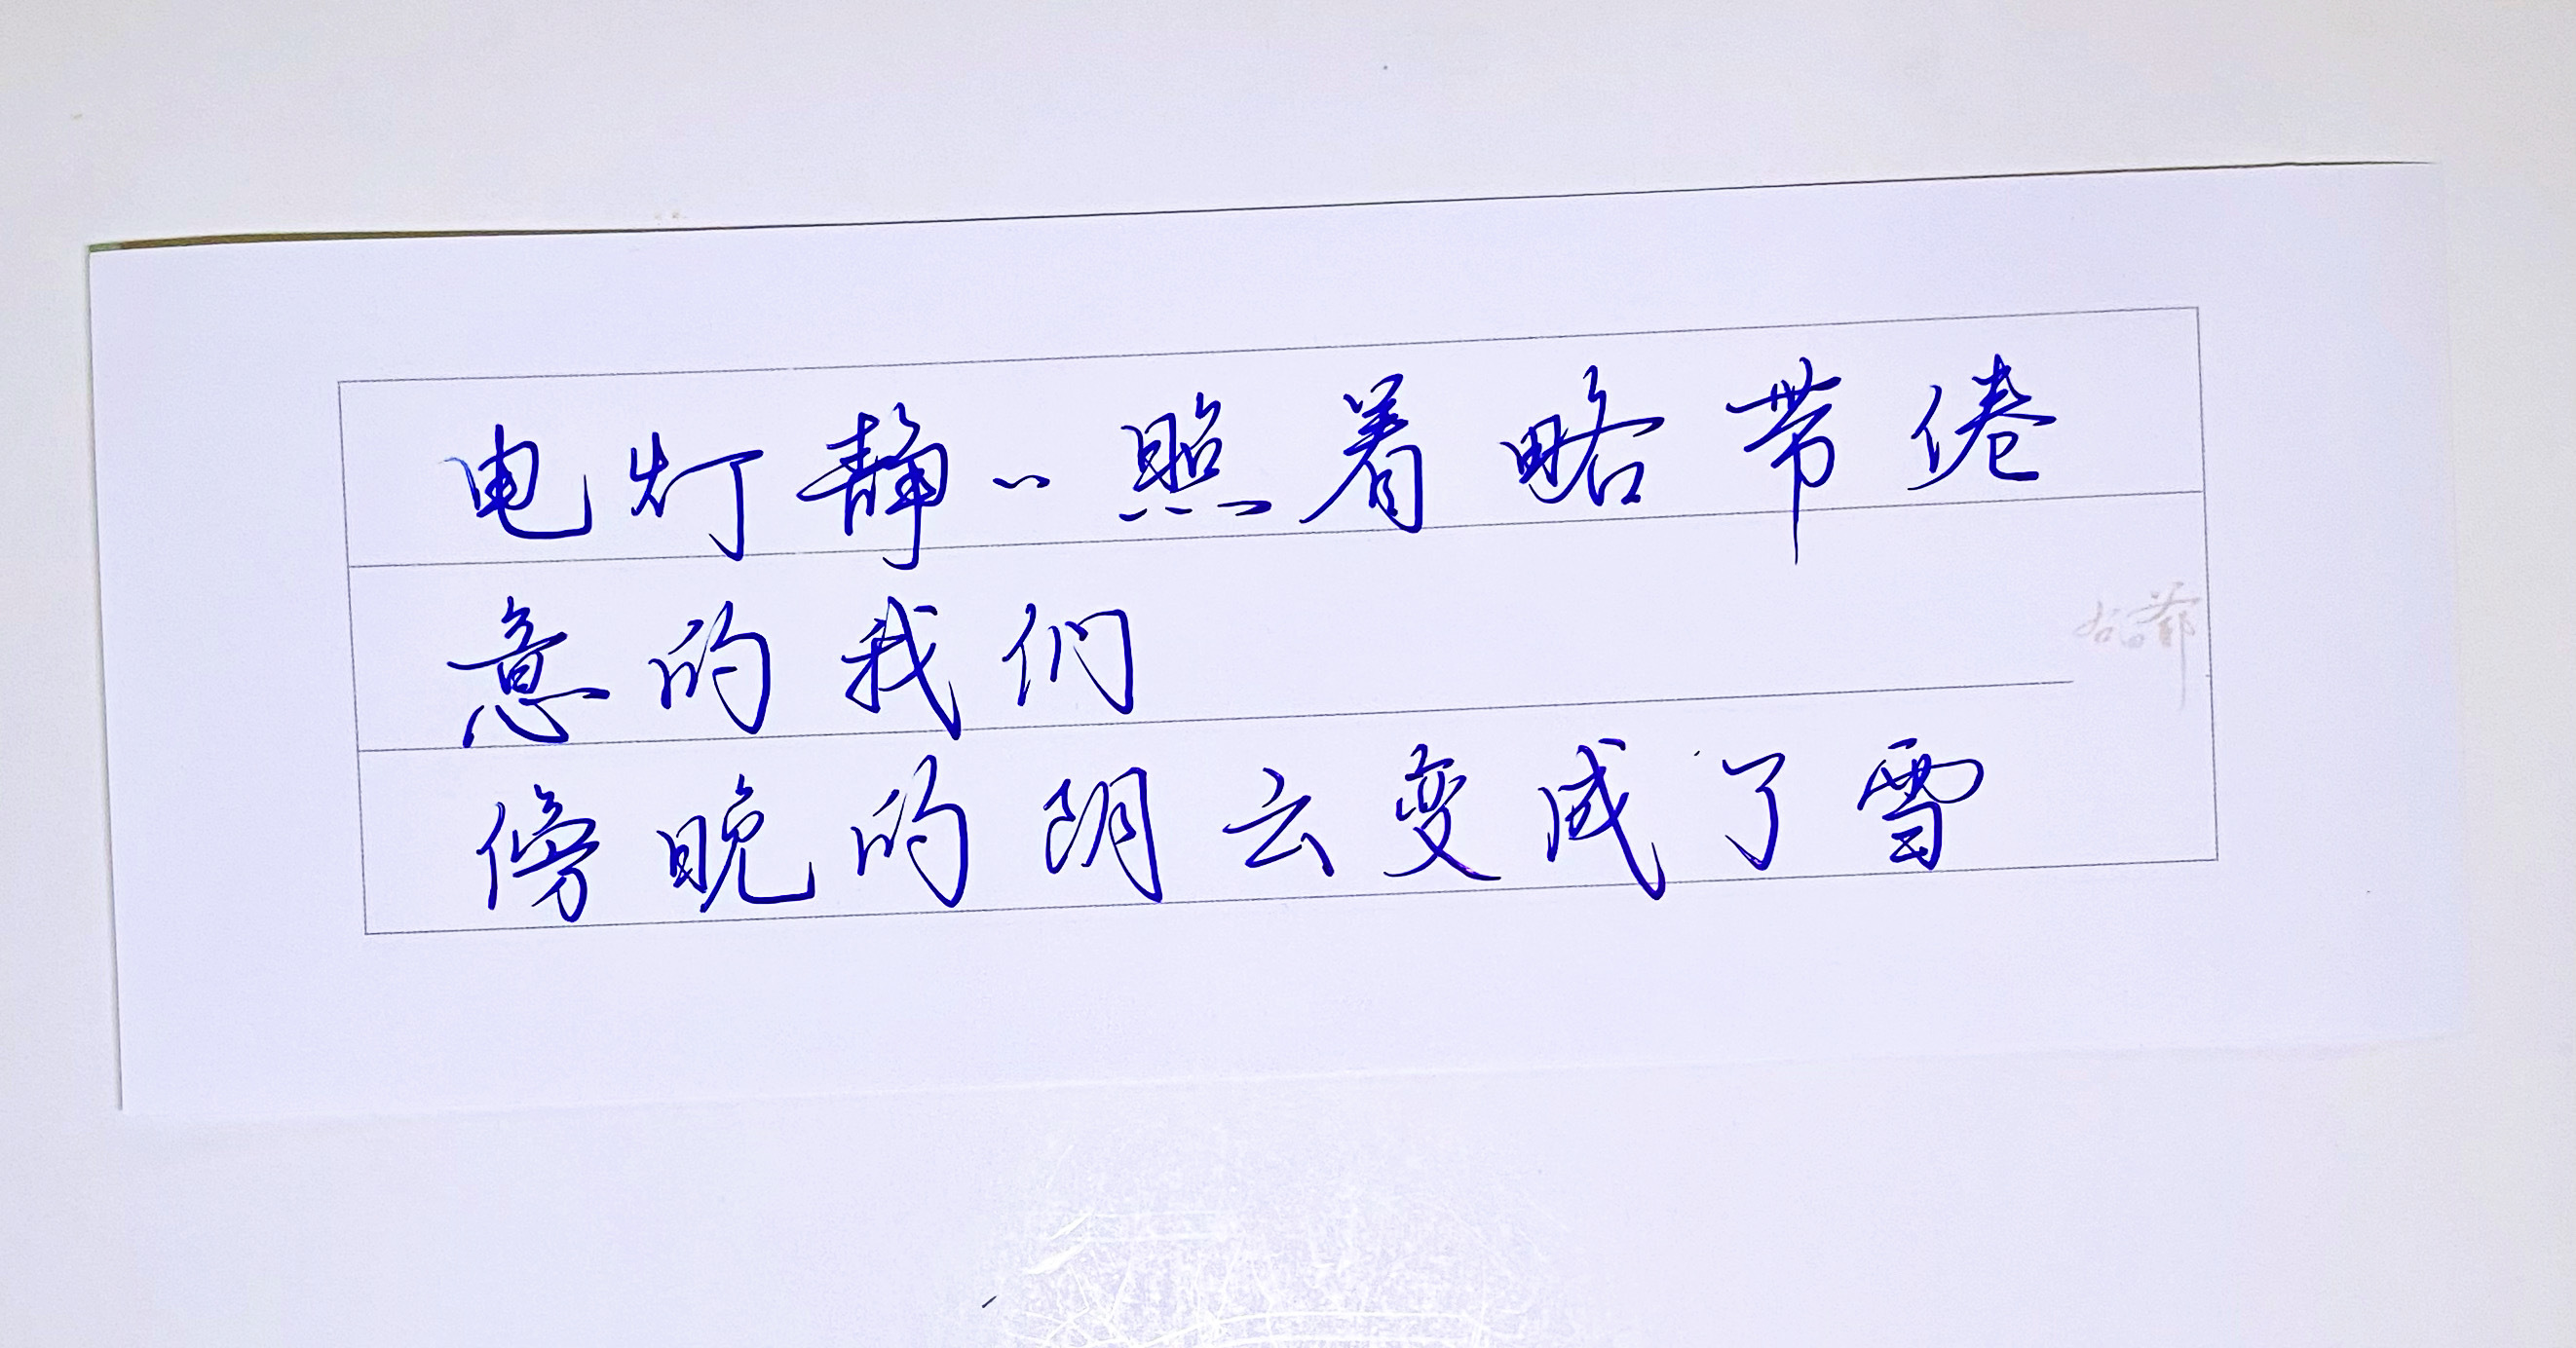 电灯静〻照着略带倦
意的我们
傍晚的阴云变成了雪